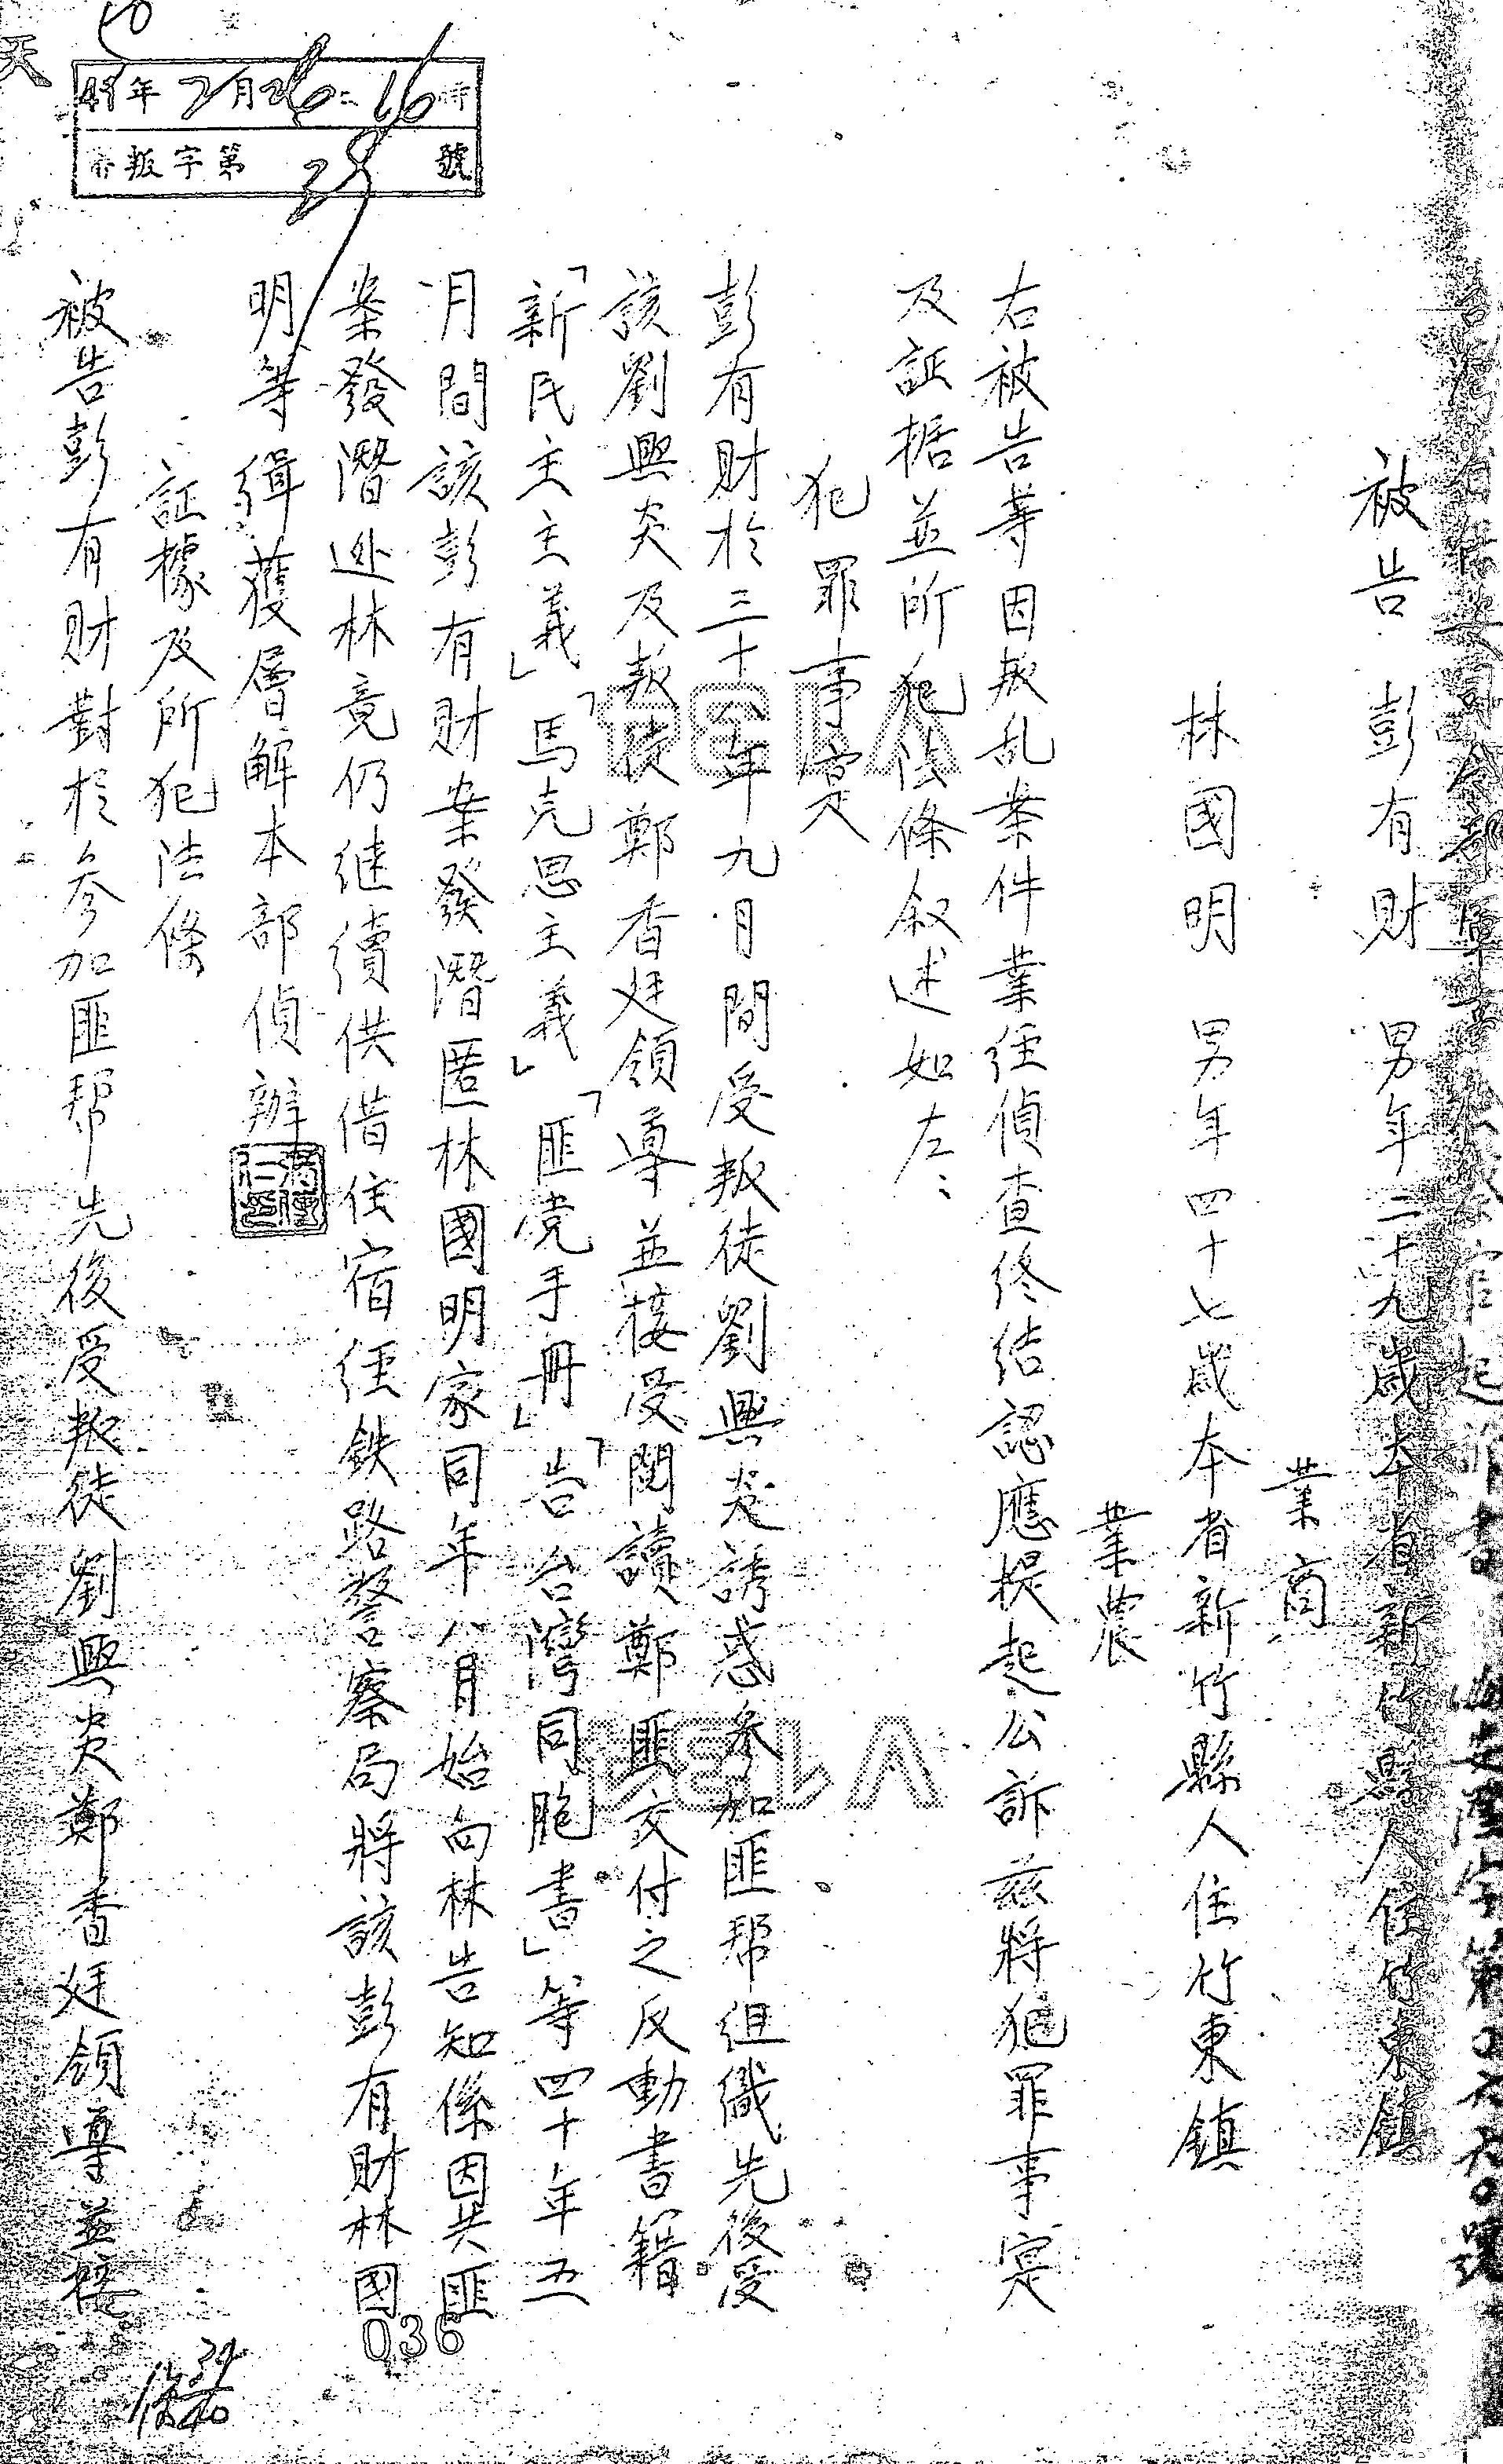 台灣省保安司令部軍事檢察官起訴書
被告 彭有財 男年二十九歲本省新竹縣人住竹東鎮
業商
林國明 男年四十七歲本省新竹縣人住竹東鎮
業農
右被告等因叛乱案件業经偵查终结認應提起公訴兹將犯罪事实
及証据並所犯法條叙述如左、
犯罪事实
彭有財於三十八年九月間受叛徒劉興炎誘惑参加匪帮组織先後受
該劉興炎及叛徒鄭香廷領導並接受閱讀鄭匪交付之反動書籍
「新民主主義」「馬克思主義」「匪党手冊」「告台灣同胞書」等四十年五
月間該彭有財案發潛匿林國明家同年八月始向林告知係因共匪
案發潛逃林竟仍继續供借住宿经鉄路警察局將該彭有財林國
明等緝獲層解本部偵辦
証據及所犯法條
被告彭有財對於参加匪帮先後受叛徒劉興炎鄭香廷領導並接
年2月26日16時
叛字第29號
036